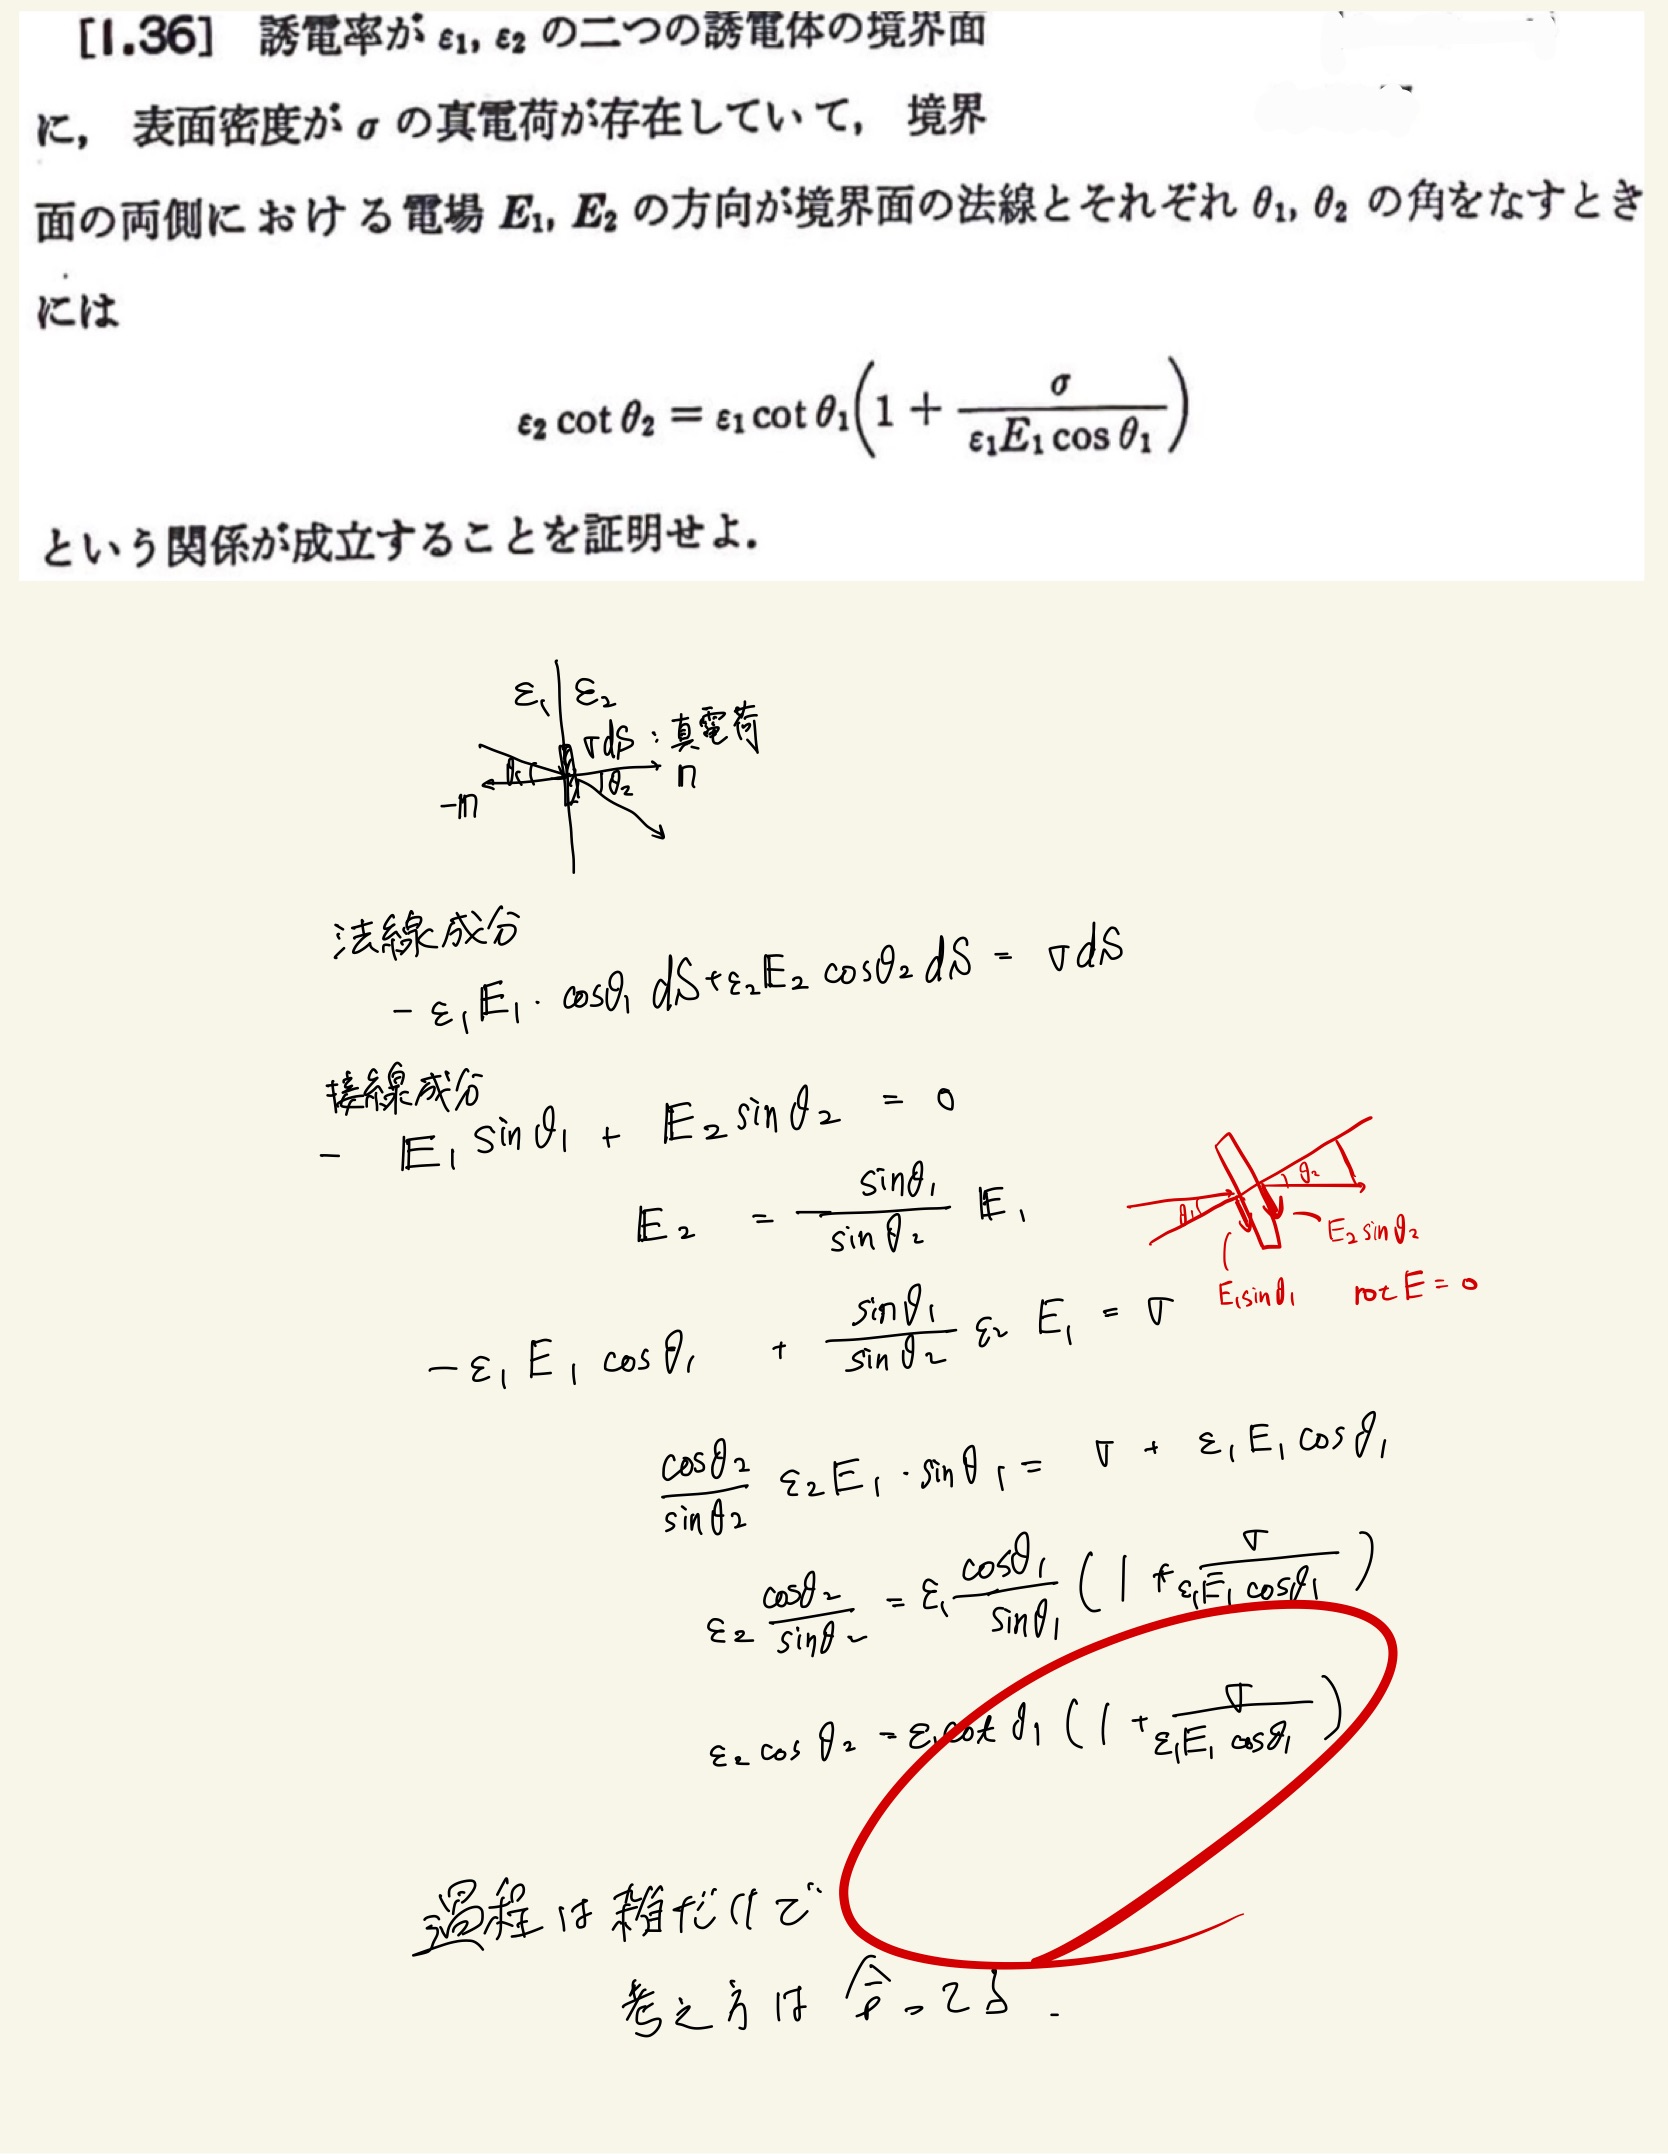 [1.36] 誘電率が ε₁, ε₂ の二つの誘電体の境界面
に, 表面密度が σ の真電荷が存在していて, 境界
面の両側における電場 E₁, E₂ の方向が境界面の法線とそれぞれ θ₁, θ₂ の角をなすとき
には
ε₂ cot θ₂ = ε₁ cot θ₁(1 + σ/(ε₁E₁ cos θ₁))
という関係が成立することを証明せよ.
ε₁ ε₂
σdS : 真電荷
θ₁ θ₂ n
-n
法線成分
- ε₁E₁・cosθ₁ dS + ε₂E₂ cosθ₂ dS = σdS
接線成分
- E₁ sinθ₁ + E₂ sinθ₂ = 0
E₂ = sinθ₁/sinθ₂ E₁
θ₁ θ₂
E₂ sinθ₂
E₁sinθ₁ rot E = 0
-ε₁ E₁ cosθ₁ + sinθ₁/sinθ₂ ε₂ E₁ = σ
cosθ₂/sinθ₂ ε₂E₁・sinθ₁ = σ + ε₁E₁cosθ₁
ε₂ cosθ₂/sinθ₂ = ε₁ cosθ₁/sinθ₁ (1 + σ/(ε₁E₁ cosθ₁))
ε₂ cos θ₂ = ε₁cot θ₁ (1 + σ/(ε₁E₁ cosθ₁))
過程は雑だけど
考え方は合ってる.